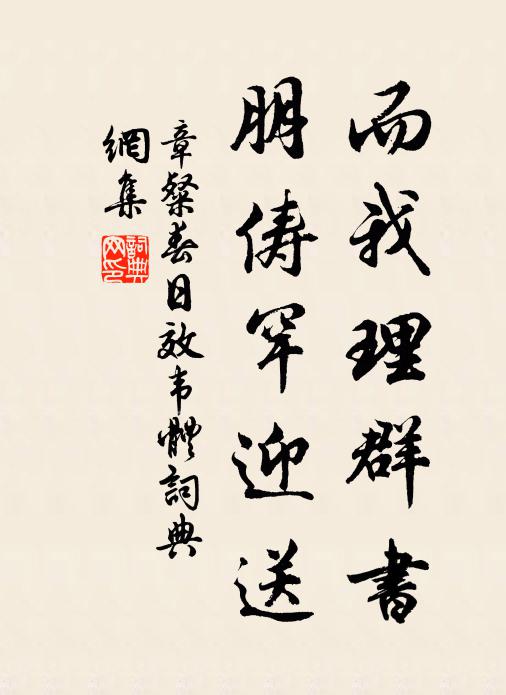 而我理群書
朋儔罕迎送
章粲春日效韦體詞典
網集
詞典
网印